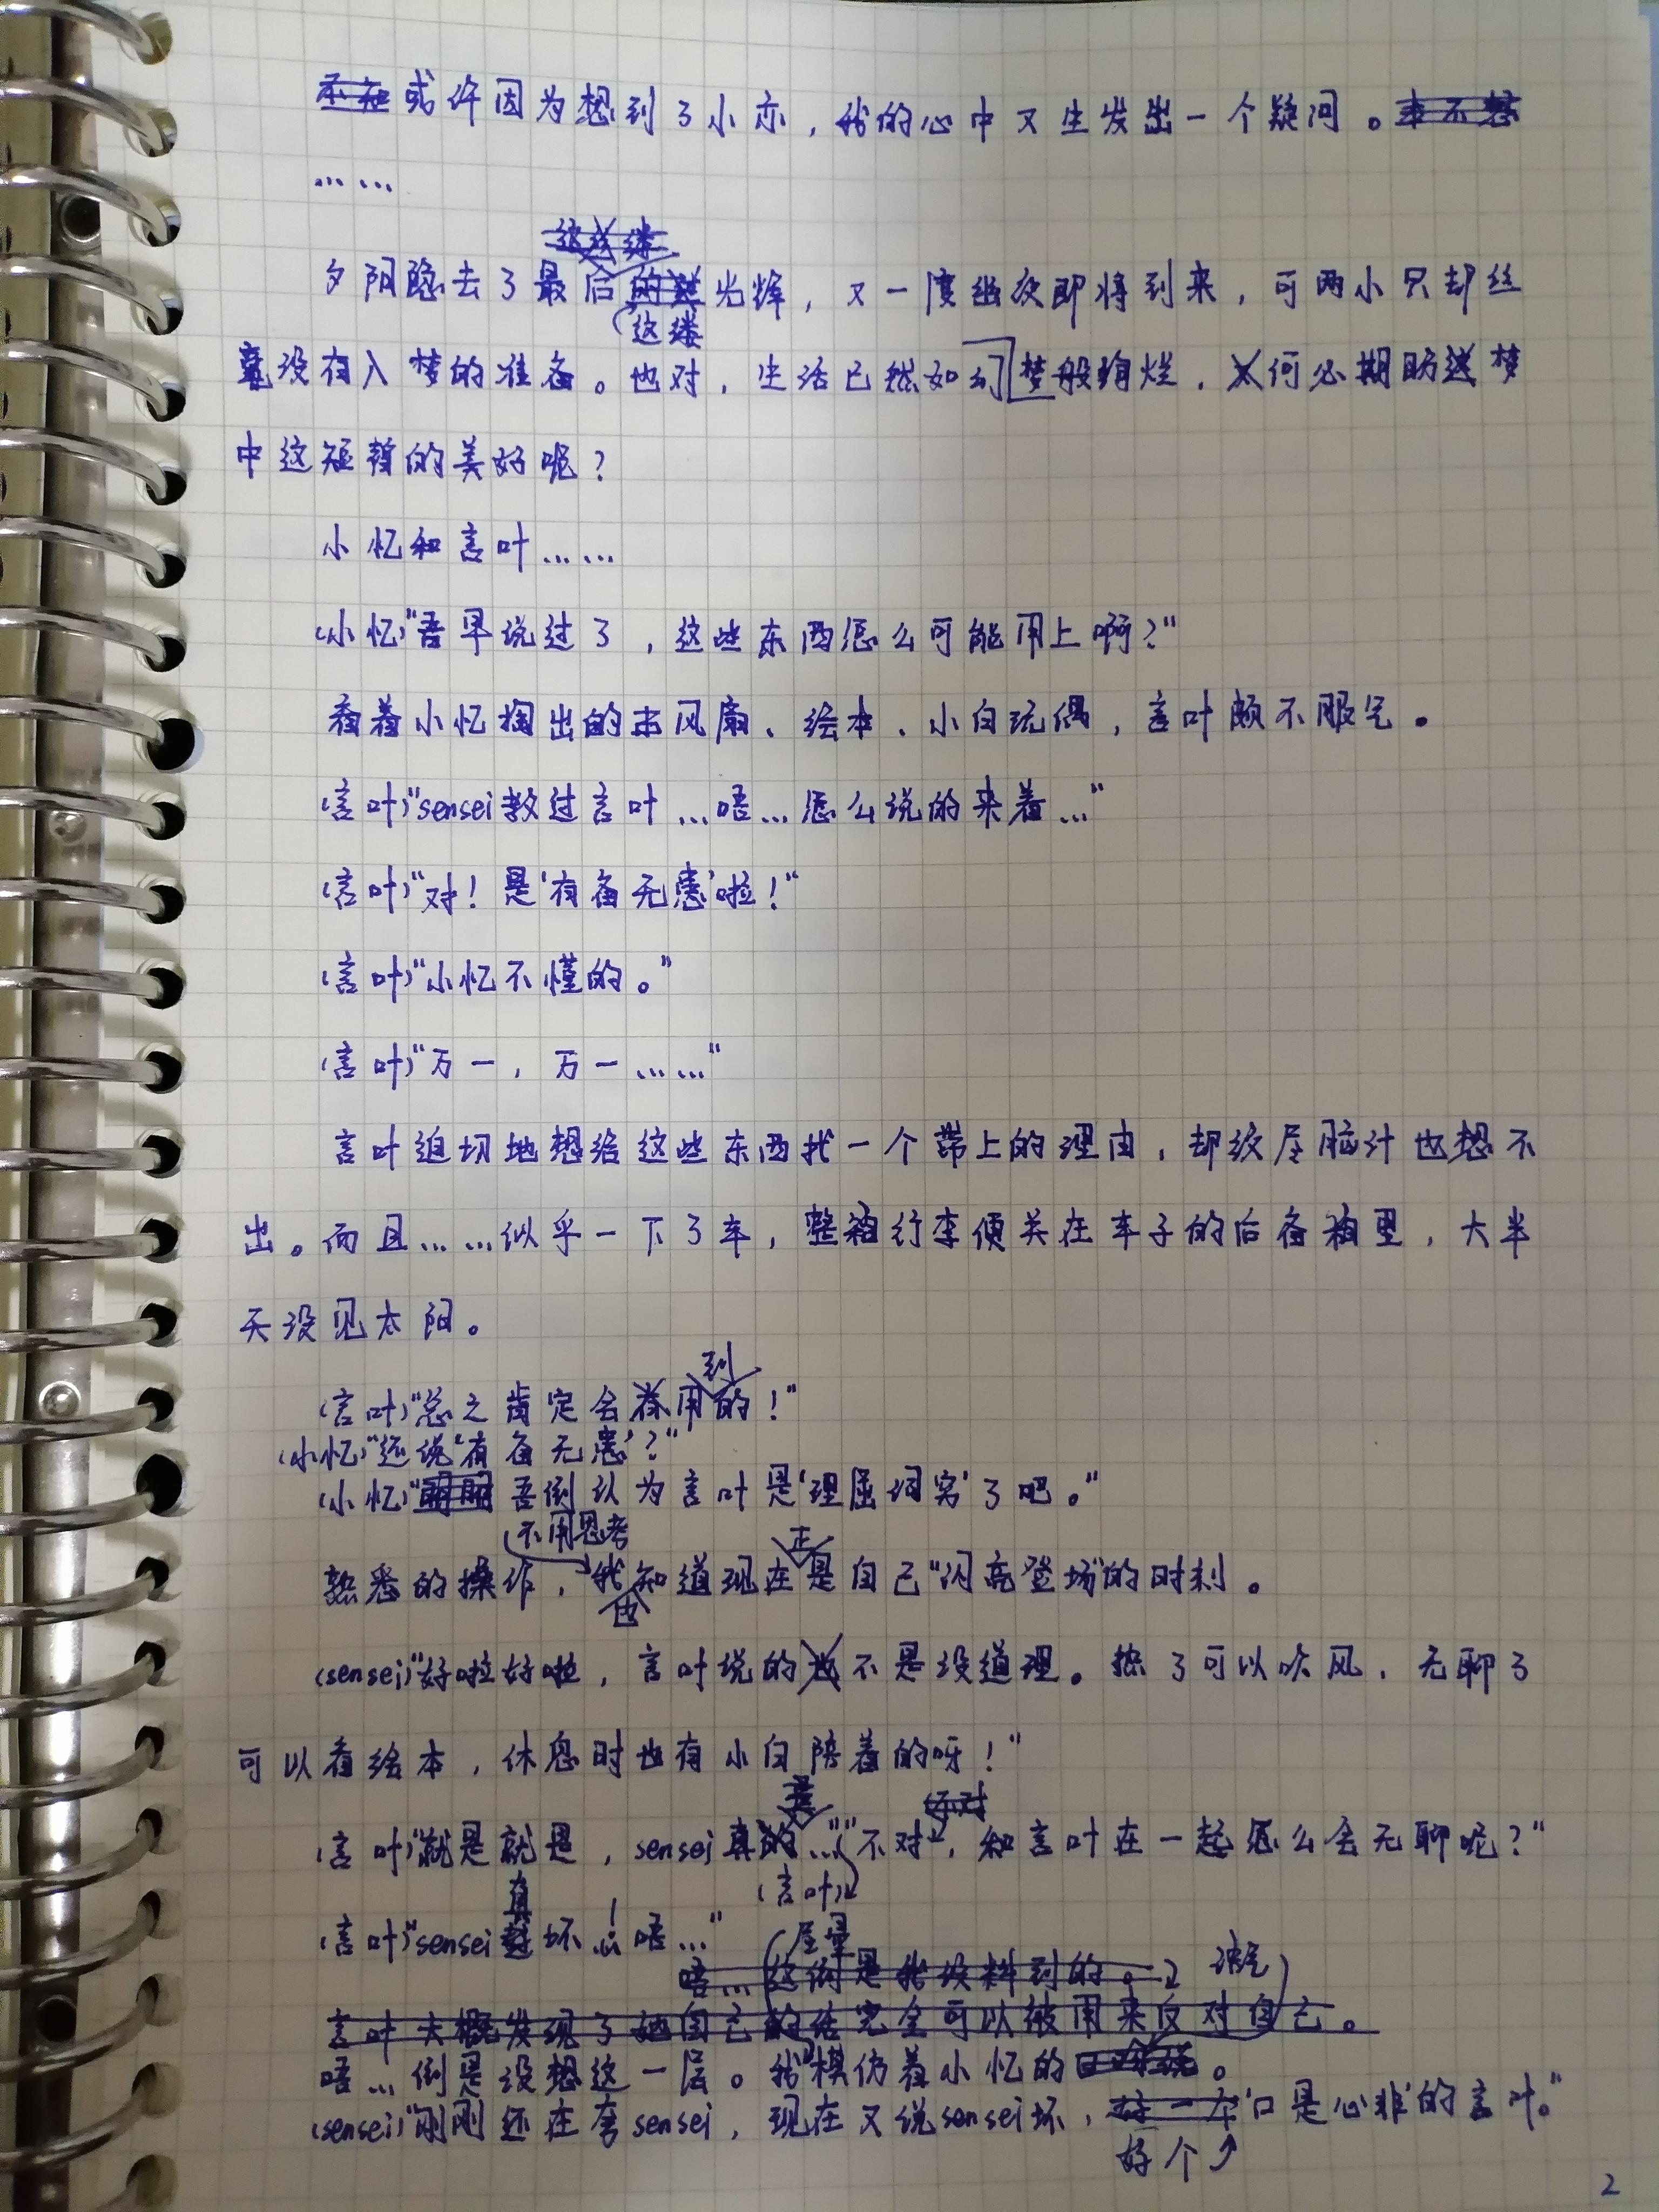 或许因为想到了小亦，我的心中又生发出一个疑问。
……
夕阳隐去了最后这缕光烽，又一度幽夜即将到来，可两小只却丝
毫没有入梦的准备。也对，生活已然如幻梦般绚烂，何必期盼梦
中这短暂的美好呢？
小忆和言叶……
(小忆)“吾早说过了，这些东西怎么可能用上啊？”
看着小忆掏出的小风扇、绘本、小白玩偶，言叶颇不服气。
(言叶)“sensei教过言叶…唔…怎么说的来着…”
(言叶)“对！是‘有备无患’啦！”
(言叶)“小忆不懂的。”
(言叶)“万一，万一……”
言叶迫切地想给这些东西找一个带上的理由，却绞尽脑汁也想不
出。而且……似乎一下了车，整箱行李便关在车子的后备箱里，大半
天没见太阳。
(言叶)“总之肯定会用到的！”
(小忆)“还说‘有备无患’？”
(小忆)“吾倒认为言叶是‘理屈词穷’了吧。”
熟悉的操作，不用思考我也知道现在正是自己“闪亮登场”的时刻。
(sensei)“好啦好啦，言叶说的不是没道理。热了可以吹风，无聊了
可以看绘本，休息时也有小白陪着的呀！”
(言叶)“就是就是，sensei真的…”(言叶)“不对，和言叶在一起怎么会无聊呢？”
(言叶)“sensei真坏！唔…”
唔…倒是没想这一层。我模仿着小忆的语气。
(sensei)“刚刚还在夸sensei，现在又说sensei坏，好个‘口是心非’的言叶。”
2